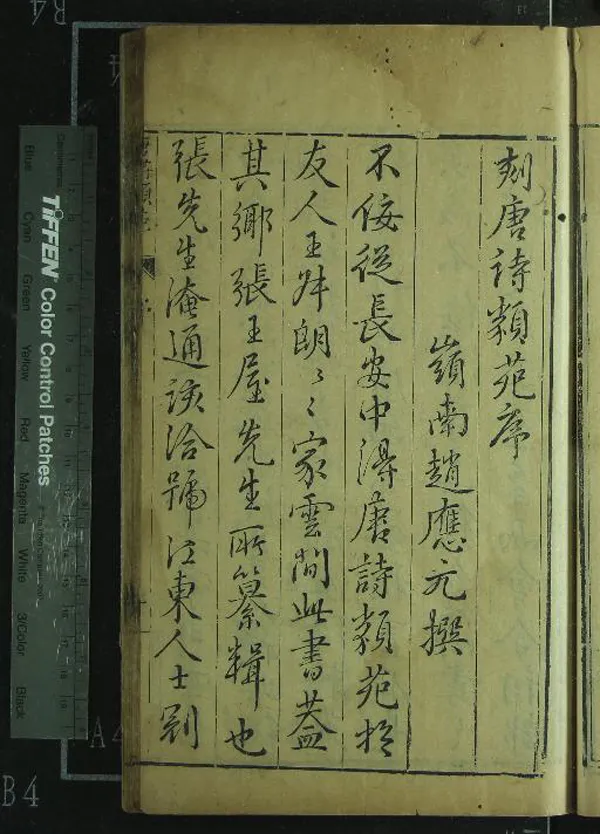 刻唐詩類苑序
嶺南趙應元撰
不佞從長安中得唐詩類苑於
友人王昇朗〻家雲間此書蓋
其鄉張王屋先生所纂輯也
張先生淹通該洽號江東人士劂
TIFFEN Color Control Patches
Blue Cyan Green Yellow Red Magenta White 3/Color Black
B4